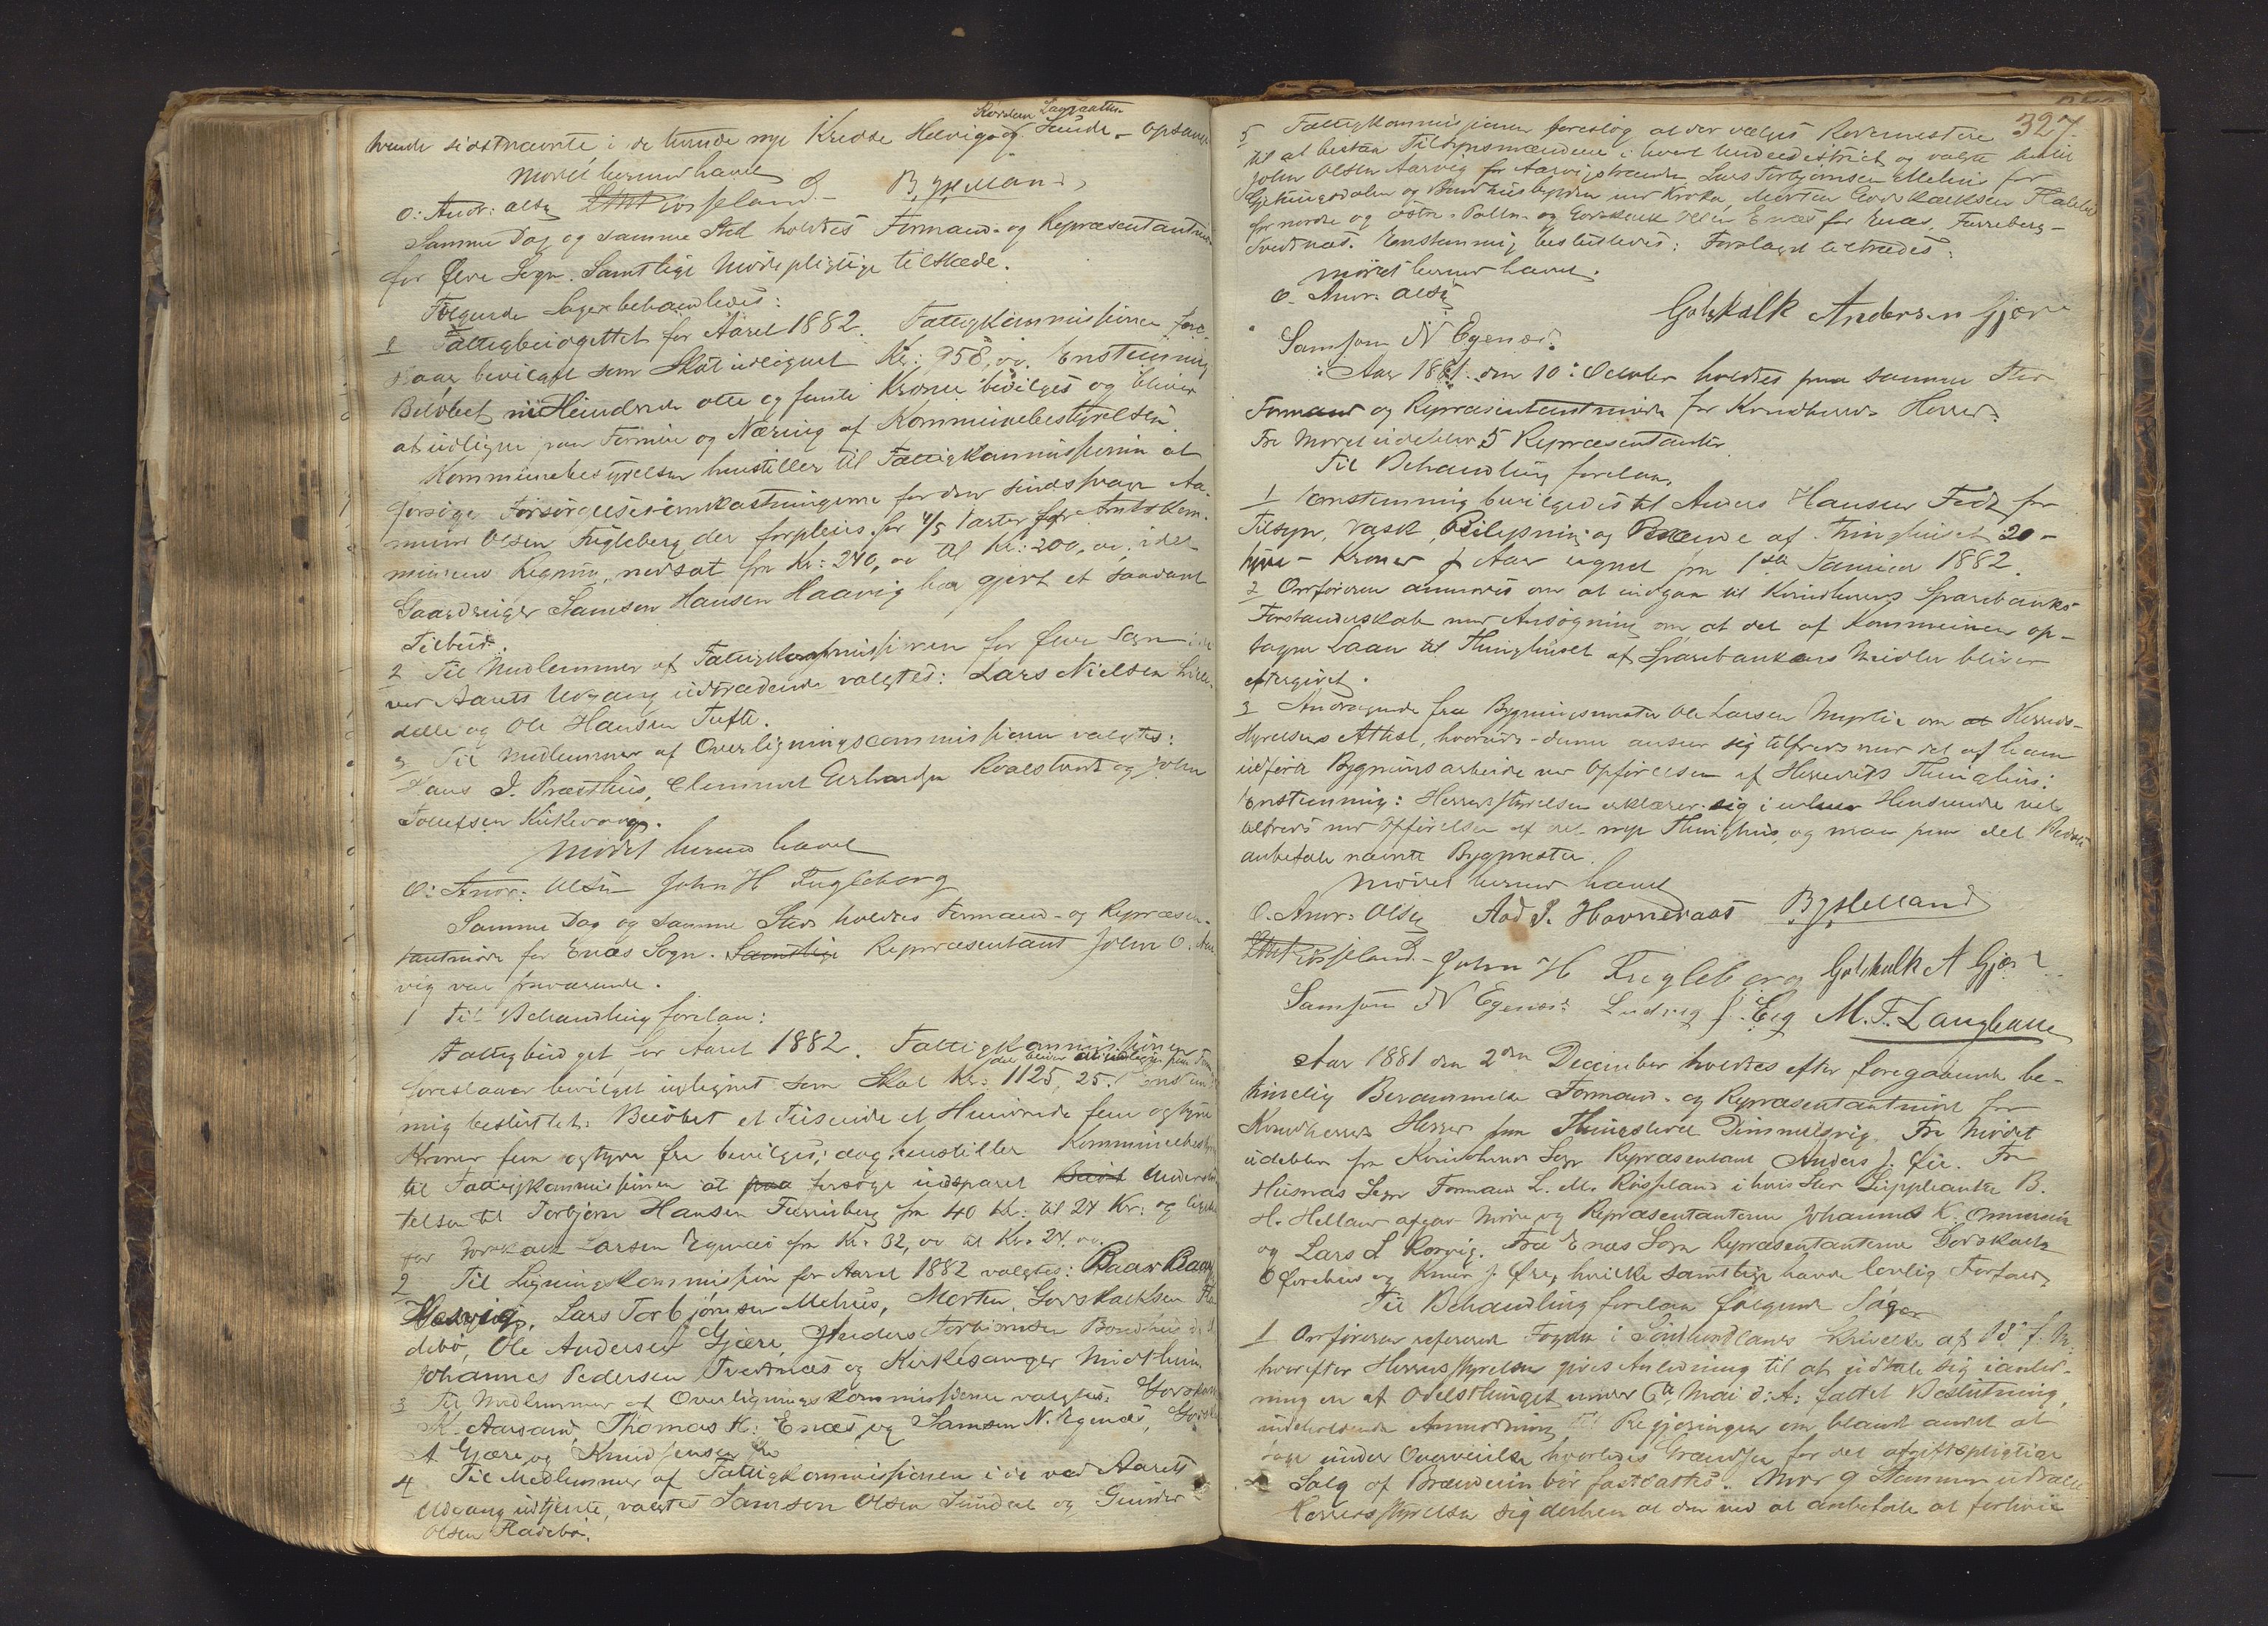 Kordem Lagsaatter
hvende sidstnævnte i de tvende nye Kredse Helvig og Sunde
Mødet hermed hævet
O: Andr: Olsen L M Røssland B. H. Helland
Samme Dag og samme Sted holdtes Formands- og Repræsentantmøde
for Ølve Sogn. Samtlige Mødepligtige tilstede.
Følgende Sager behandledes:
1 Fattigbudgettet for Aaret 1882. Fattigkommissionen fore-
slaar bevilget som Skat udlignet Kr: 958,00. Enstemmig
Beløbet ni Hundrede otte og femti Kroner bevilges og bliver
at udligne paa Formue og Næring af Kommunebestyrelsen.
Kommunebestyrelsen henstiller til Fattigkommissionen at
forsøge Forsørgelsesomkostningerne for den sindssvage Aa-
mund Olsen Fugleberg der forpleies for 4/5 Parter for Amtskom-
munens Regning, nedsat fra Kr: 240,00 til Kr: 200,00, idet
Gaardbruger Samson Hansen Haavig har gjort et saadant
Tilbud.
2 Til Medlemmer af Fattigkommissionen for Ølve Sogn i de
ved Aarets Udgang udtrædende valgtes: Lars Nielsen Lille-
dalle og Ole Hansen Tufte.
3 Til Medlemmer af Overligningscommissionen valgtes:
Hans J. Præsthus, Clemmet Gerhardsen Kvalstvedt og John
Tollefsen Kirkevaag.
Mødet hermed hævet
O: Andr: Olsen John H Fugleberg
Samme Dag og samme Sted holdtes Formands- og Repræsen-
tantmøde for Enæs Sogn. Samtlige Repræsentant John O. Aar
vig var fraværende.
1 Til Behandling forelaa:
Fattigbudget for Aaret 1882. Fattigkommissionen
der bliver at udligne paa Form
foreslaaer bevilget udlignet som Skat Kr: 1125,25. Enstem
mig besluttet: Beløbet et Tusende et Hundrede fem og tyve
Kroner fem og tyve Øre bevilges; dog henstiller Kommunebesty
til Fattigkommissionen at paa forsøge indsparet Understøt
telsen til Torbjørn Hansen Furreberg fra 40 Kr: til 24 Kr: og lige
for Godskalk Larsen Egenæs fra Kr. 32,00 til Kr. 24.00.
2 Til Ligningskommission for Aaret 1882 valgtes: Baar Baar
Helvig, Lars Torbjørnsen Mehus, Morten Godskalksen Fla
debø, Ole Andersen Gjære, Anders Torbjørnsen Bondhus
Johannes Pedersen Tvedtnæs og Kirkesanger Midthun
3 Til Medlemmer af Overligningskommissionen valgtes: Godskalk
K. Aarsand, Thomas H: Enæs, og Samson N. Egenæs, Godsk
A Gjære og Knud Jensen Øre
4 Til Medlemmer af Fattigkommissionen i de ved Aarets
Udgang udtjente, valgtes Samson Olsen Sundal og Gunder
Olsen Fladebø.
327.
5 Fattigkommissionen foreslog at der vælges Rodemestere
til at bestaa Tilsynsmændene i hvert Underdistrict og valgte hertil
John Olsen Aarvig for Aarvigstranden Lars Torbjørnsen Mehus for
Gjetingsdalen og Bondhusbygden med Kroka, Morten Godskalksen Fladebø
for nordre og østre Pollen og Godskalk Olsen Enæs for Enæs, Furreberg-
Tvedtnæs. Enstemmig besluttedes: Forslaget tiltrædes.
Mødet hermed hævet.
O. Andr: Olsen Gotskalk Andersen Gjære
Samson N Egenæs.
Aar 1881 den 10de October holdtes paa samme Sted
Formand og Repræsentantmøde for Kvindherreds Herred.
Fra Mødet udeblev 5 Repræsentanter.
Til Behandling forelaa,
1 Enstemmig bevilgedes til Anders Hansen Fedt for
Tilsyn, Vask, Belysning og Brænde af Thinghuset 20-
tyve- Kroner pr Aar regnet fra 1ste Januar 1882.
2 Ordføreren anmodes om at indgaa til Kvindherreds Sparebanks
Forstanderskab med Ansøgning om, at det af Kommunen op-
tagne Laan til Thinghuset af Sparebankens Midler bliver
eftergivet.
3 Andragende fra Bygningsmester Ole Larsen Myrlie om at Herreds-
styrelsens Attest, hvorvidt denne anser sig tilfreds med det af ham
udførte Bygningsarbeide ved Opførelsen af Herredets Thinghus:
Enstemmig: Herredsstyrelsen erklærer sig i enhver Henseende vel
tilfreds med Opførelsen af det nye Thinghus, og maa paa det Bedste
anbefale nævnte Bygmester.
Mødet hermed hævet
O. Andr: Olsen Aad J. Hovnedaas B H Helland
L M Røssland John H Fugleberg Gotskalk A Gjære
Samson N Egenæs Ludvig J. Eeg M. F. Langballe
Aar 1881 den 2den December holdtes efter foregaaende be-
timelig Berammelse Formand- og Repræsentantmøde for
Kvindherreds Herred paa Thingstedet Dimmelsvig. Fra Mødet
udeblev fra Kvindherreds Sogn Repræsentant Anders J. Øie. Fra
Husnæs Sogn Formand L. M. Røssland i hvis Sted Suppleanten B.
H. Helland afgav Møde og Repræsentanterne Johannes K. Ommeim
og Lars L Rørvig. Fra Enæs Sogn Repræsentanterne Godskalk
O Ørehus og Knud J. Øre, hvilke samtlige havde lovlig Forfald.
Til Behandling forelaa følgende Sager
1 Ordføreren refererede Fogden i Søndhordlands Skrivelse af 18de f. M:
hvorefter Herredsstyrelsen gives Anledning til at udtale sig i anled-
ning en af Odelsthinget under 6te Mai d: A: fattet Beslutning,
indeholdende Anmodning til Regjeringen om blandt andet at
tage under Overveielse hvorledes Grændsen for det afgiftspligtige
Salg af Brændeviin bør fastsættes. Mod 9 Stemmer udtalte
Herredsstyrelsen sig derhen at den ved at anbefale at forhøie